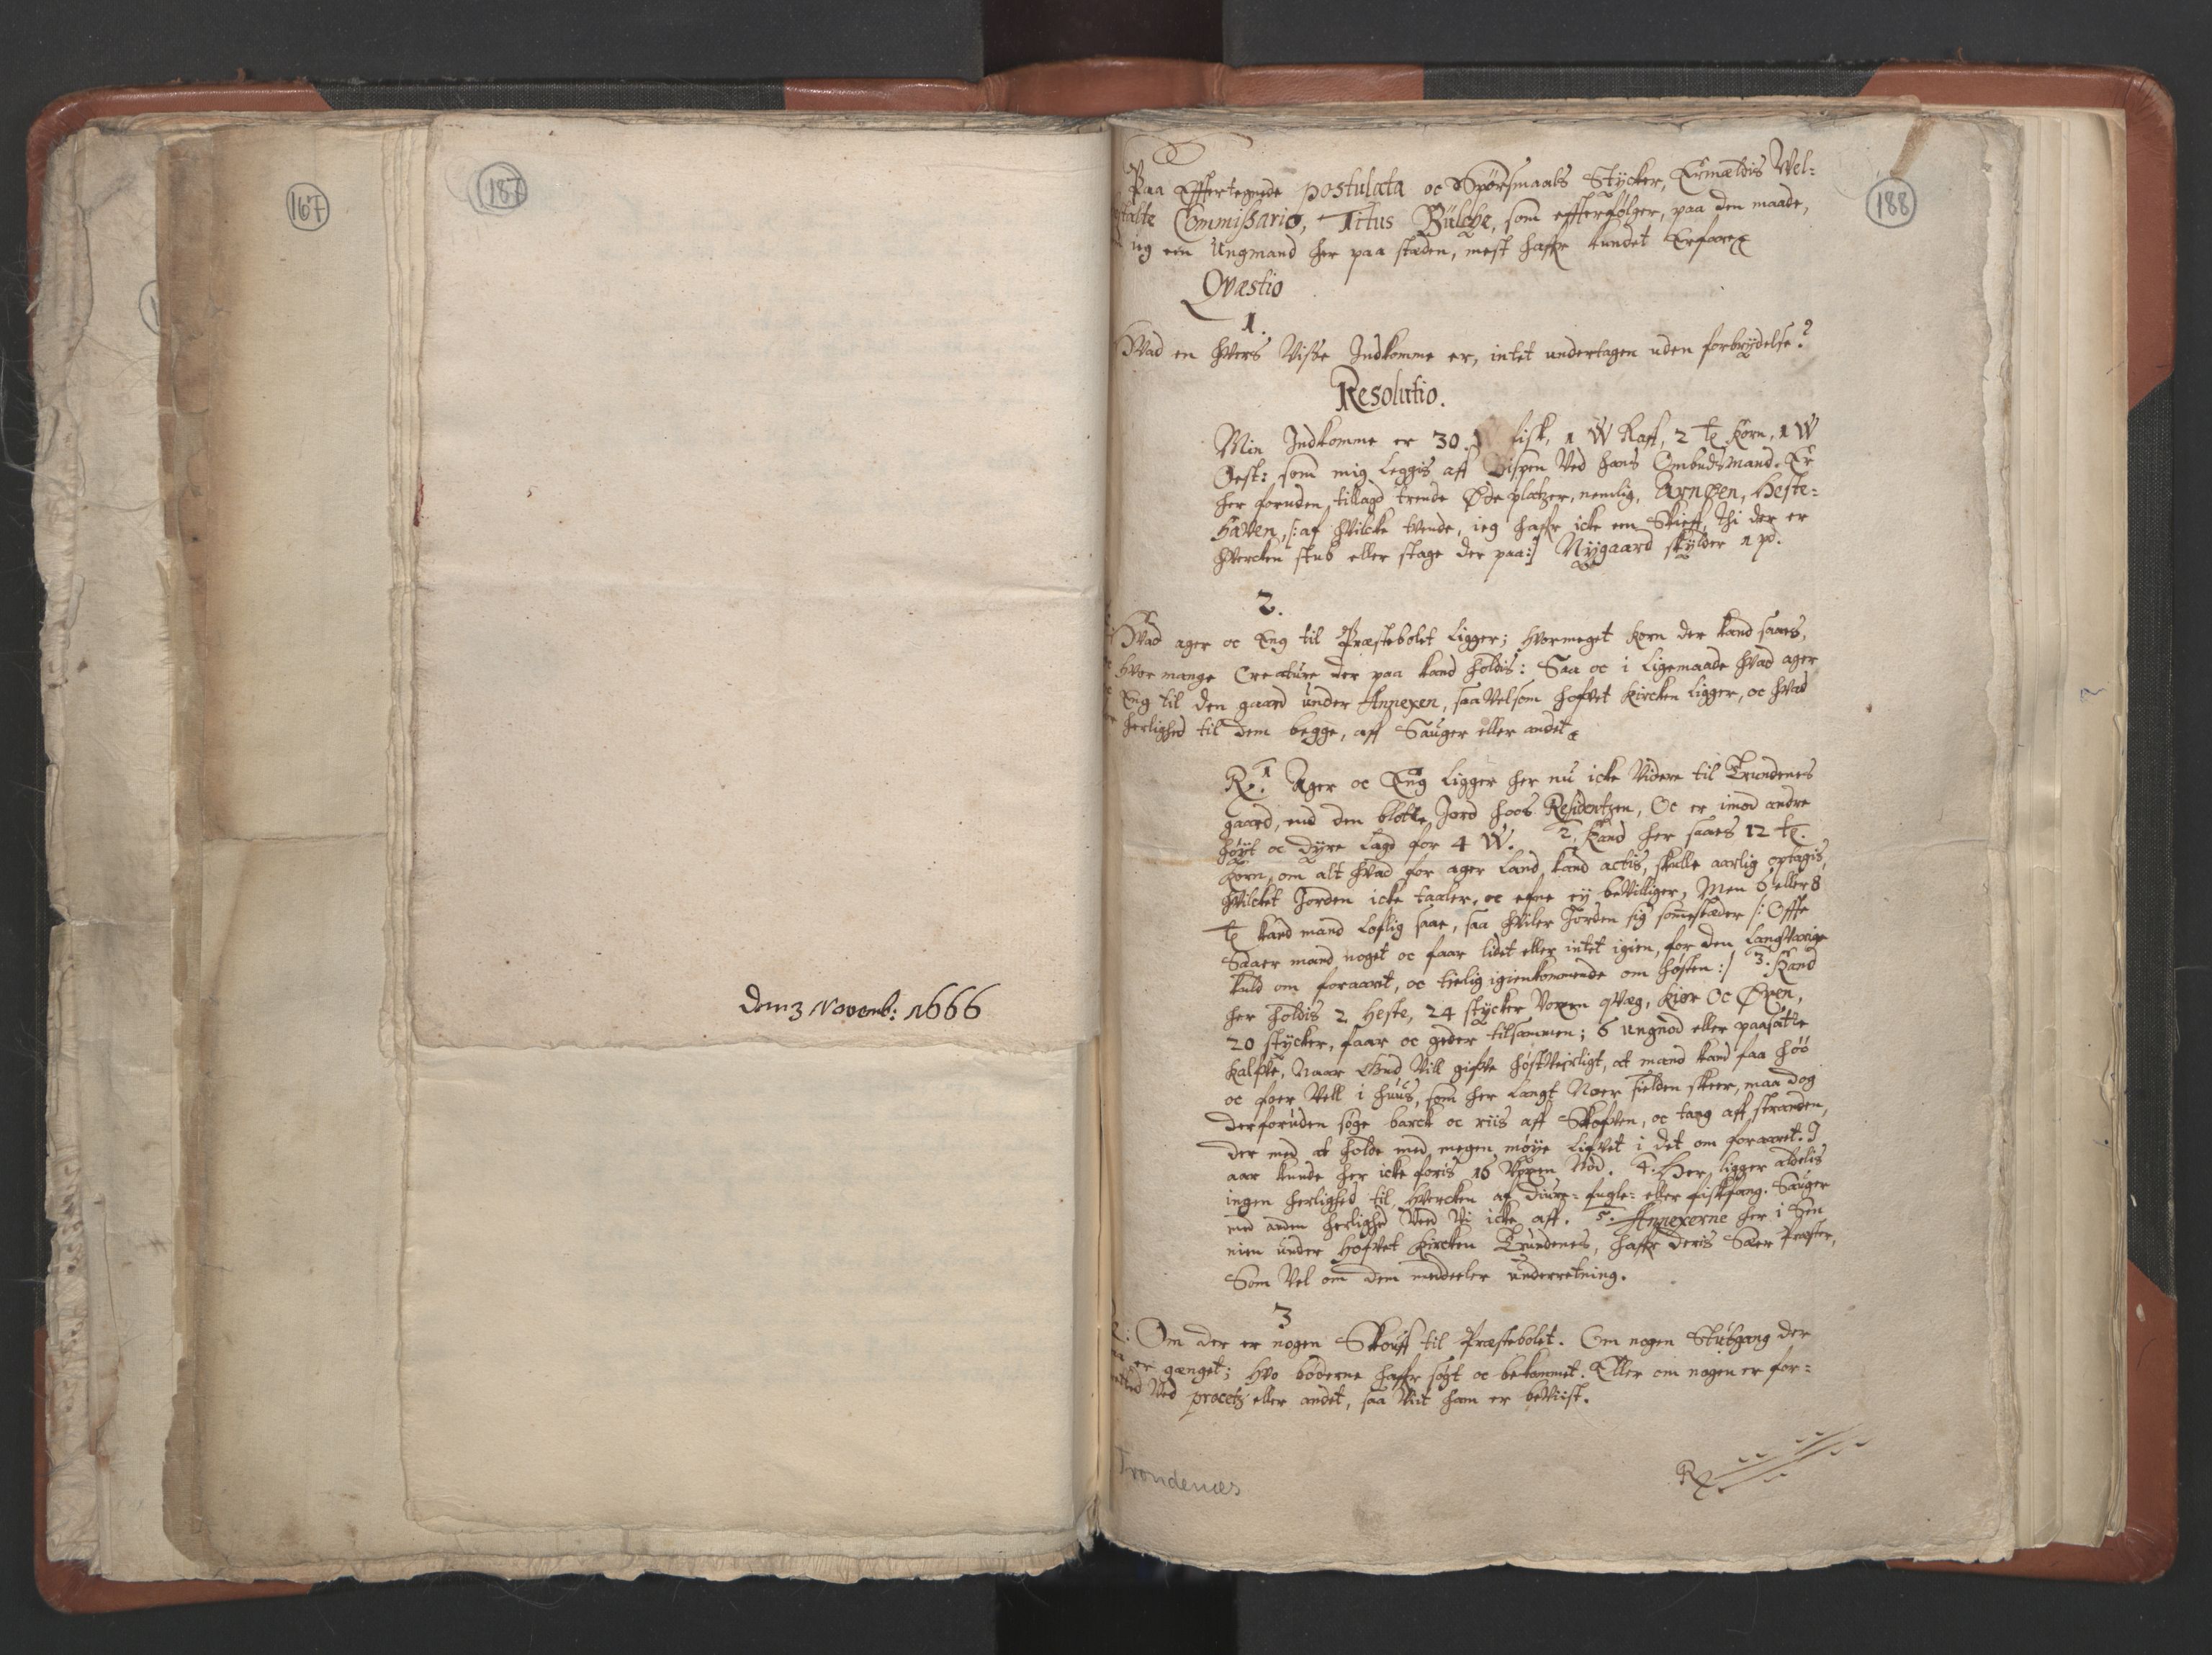 167
187
Den 3 Novemb: 1666
188
Paa Effertegnede postulata oc Spörsmaals Stÿcker, Ermældis Wel=
Commissario, Titus Bülche, som effterfølger, paa den maade,
ieg en Ungmand her paa stæden, mest haffr kundet Erfare
Qvæstio
1.
Hvad en hvers Visse Indkomme er, intet undertagen uden forbrÿdelse?
Resolutio.
Min Indkomme er 30. W fisk, 1 W Raff, 2 t Korn, 1 W
Oest: som mig Leggis aff Bispen Ved hans Ombudsmand. Er
her foruden tillagd trende Øde platzer, nemlig, Arnöen, Heste=
Haven, /: af hvilcke tvende, ieg haffr icke een Skieff, thi der er
hvercken stub eller stage der paa:/ Nÿgaard skÿlder 1 pd.
2.
Hvad ager oc Eng til Præstebolet Ligger; hvormeget Korn der kand saaes,
hvor mange Creature der paa kand holdis: Saa oc i Ligemaade hvad ager
Eng til den gaard under Annexen, saa Velsom hofvet Kircken Ligger, oc hvad
herlighed til dem begge, aff Sauger eller andet
R. 1 Ager oc Eng Ligger her nu icke Videre til Trundenes
gaard, end den blotte Jord hoos Residentzen, Oc er imod andre
høÿt oc dÿre Lagd for 4 W. 2. Kand her saaes 12 t.
Korn, om alt hvad for ager Land kand actis, skulle aarlig optagis,
hvilcket Jorden icke taaler, oc efne eÿ beVilliger, Men 6 eller 8
t kand mand Loflig saae, saa hviler Jorden sig somestæder /: Offte
Saaer mand noget oc faar lidet eller intet igien, for den LangVarige
kuld om foraaret, oc tielig igienkommende om høsten :/ 3. Kand
her holdis 2 Heste, 24 stÿcker Voxen qVæg, Kiör Oc Øxen,
20 stÿcker, faar oc geder tilsammen; 6 ungnöd eller paasatte
Kalfve, Naar Gud Vill gifve høstVeirligt, at mand kand faa höö
oc foer Vell i huus, som her Langt Noer fielden skeer, maa dog
derforuden søge barck oc riis aff Skofven, oc tang aff stranden,
der med at holde med megen möÿe Lifvet i det om foraaret. I
aar kunde her icke foris 16 Voxen Nöd. 4. Her Ligger aldelis
ingen herlighed til, hvercken af diure= fugle= eller fiskfang. Sauger
med anden herlighed Veed Vi icke aff. 5. Annexerne her i Sen
nien under Hofvet Kircken Trundenes, haffr deris Sær Præster,
Som Vel om dem meddeeler underretning.
3
Om der er nogen Skouff til Præstebolet. Om nogen Stubgang der
er ganget; hvo böderne haffr søgt oc bekommet. Eller om nogen er for=
Ved procetz eller andet, saa Viit ham er beViist.
R
Trondenes